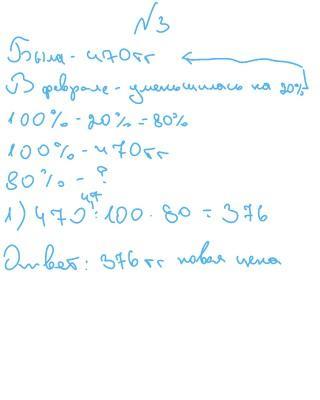 №3
Была - 470тг
В феврале - уменьшилась на 20%
100% - 20% = 80%
100% - 470тг
80% - ?
1) 470 : 100 · 80 = 376
Ответ: 376тг новая цена